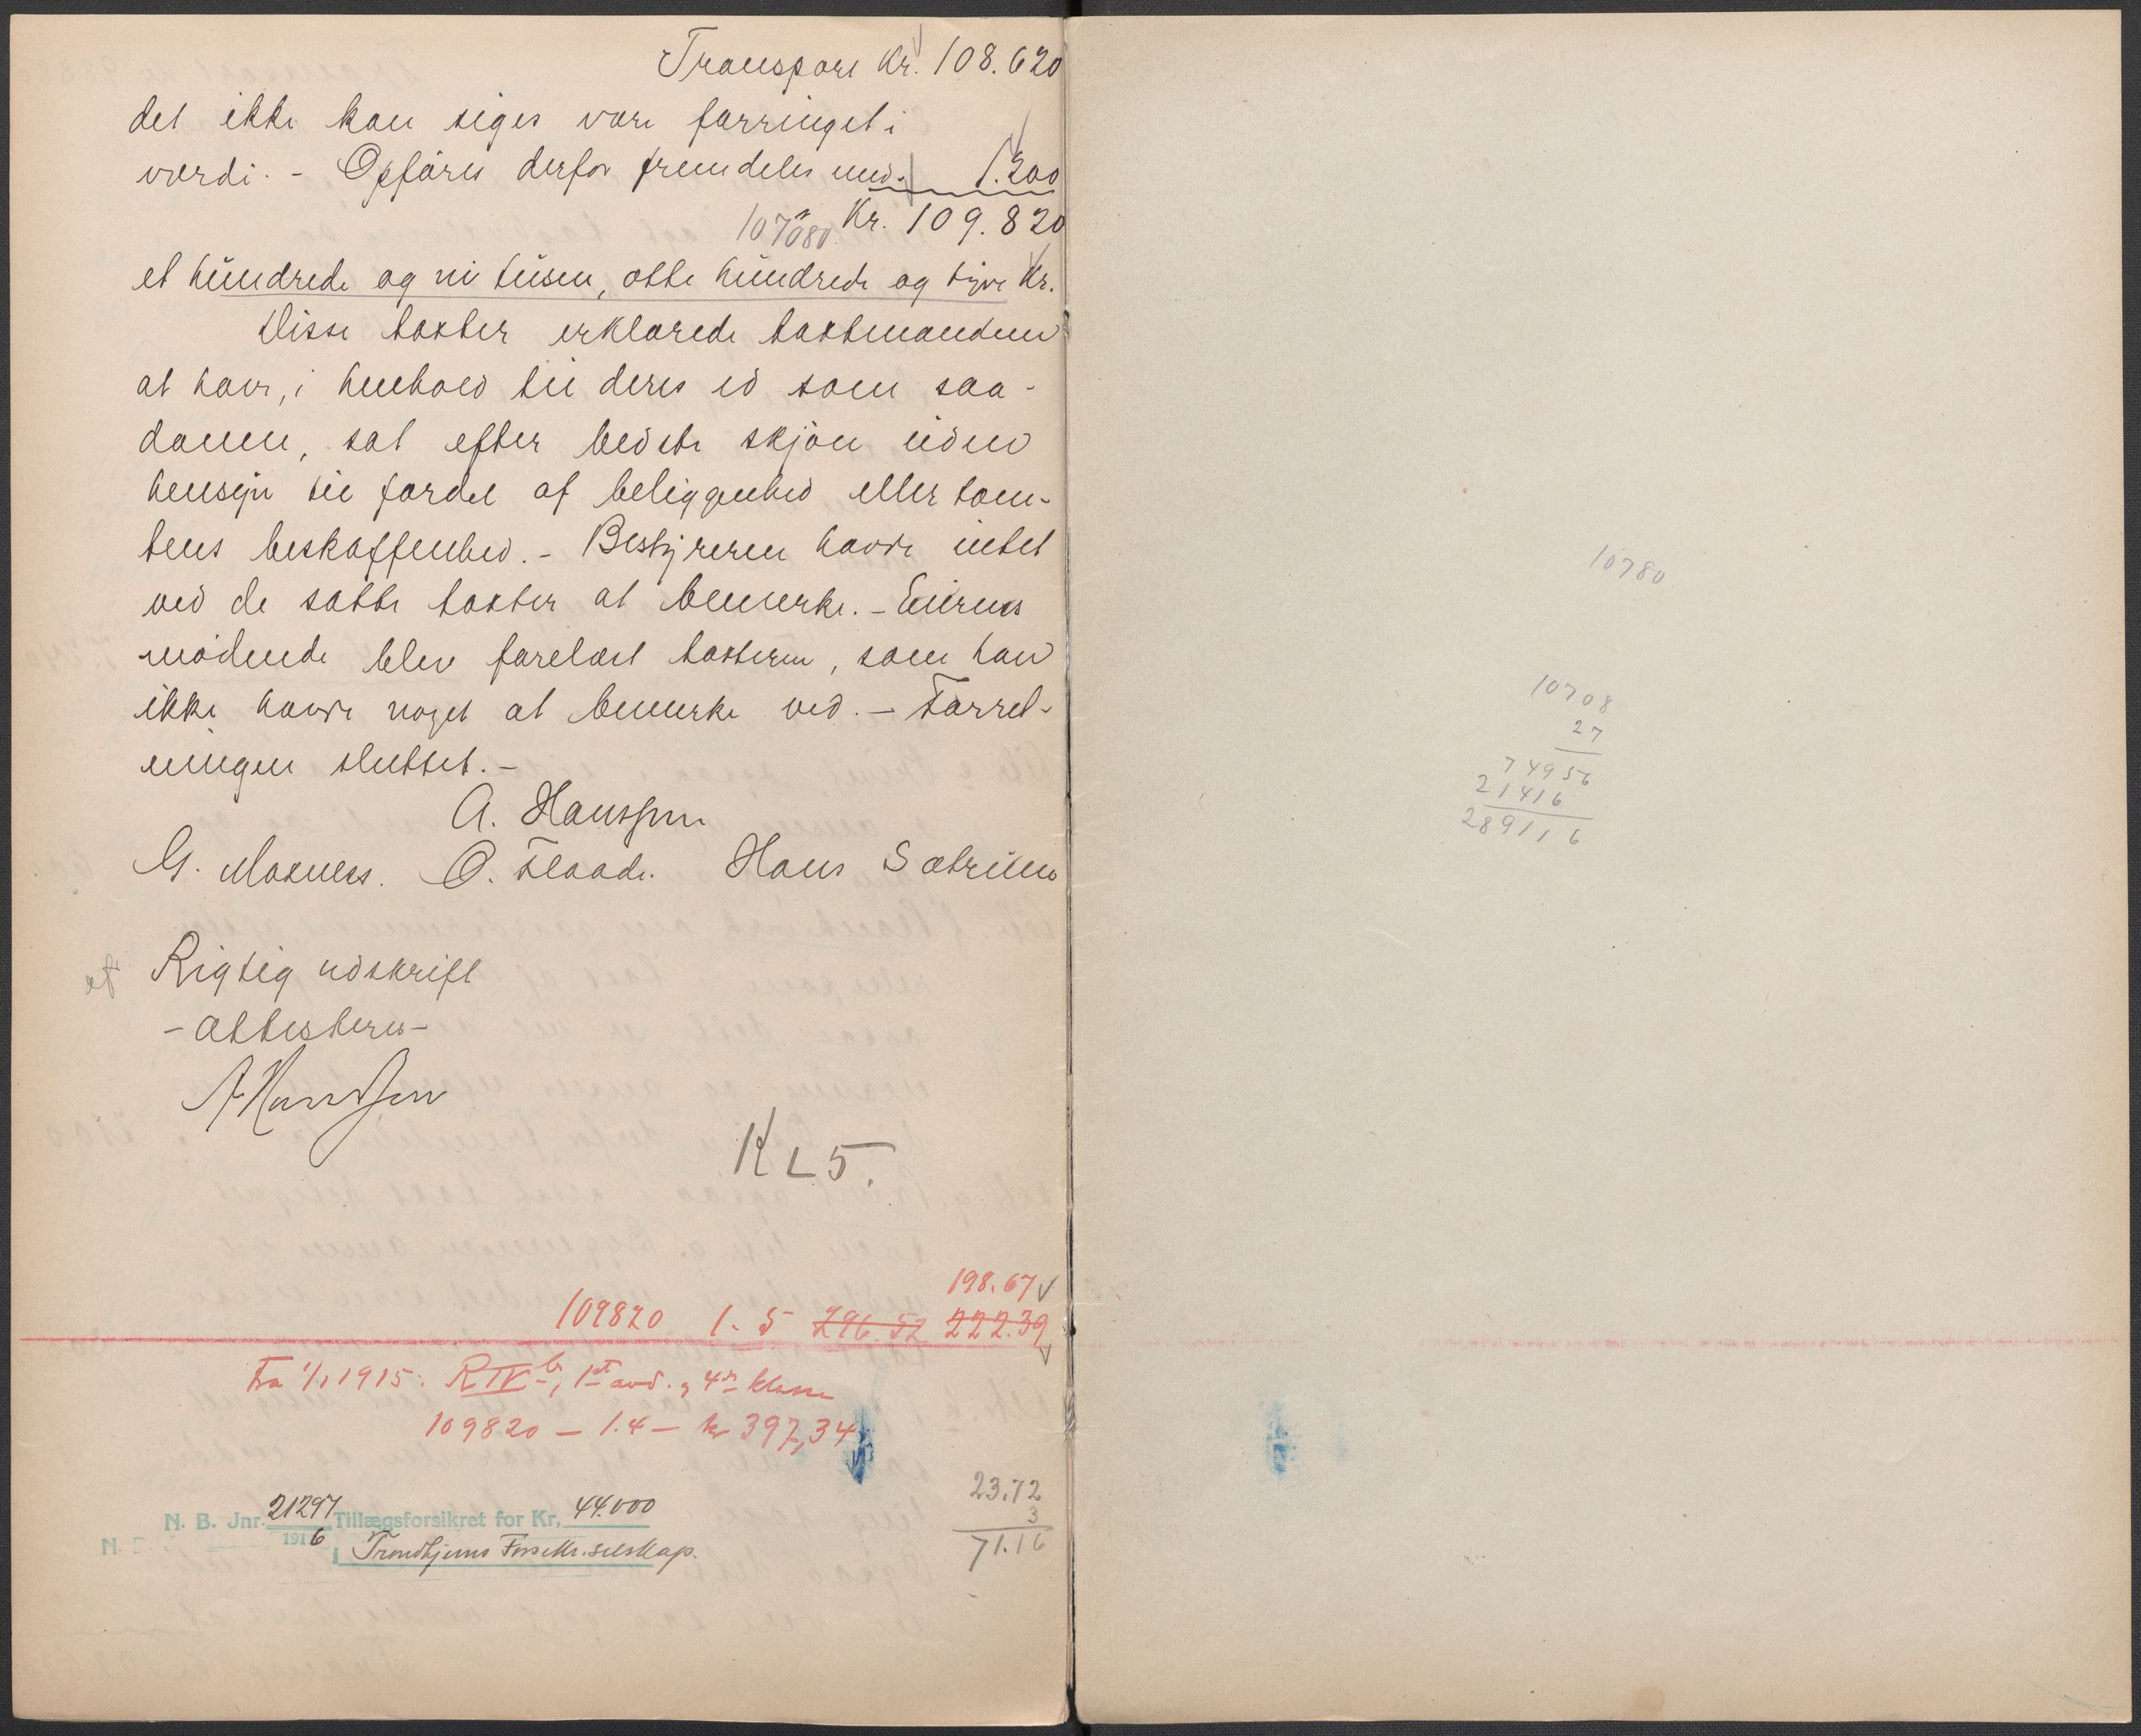 Transport Kr. 108.620
det ikke kan siges være forringet i
værdi. - Opføres derfor fremdeles med. 1.200
107080 Kr. 109.820
et hundrede og ni tusen, otte hundrede og tyve Kr.
Disse taxter erklærede taxtmændene
at have, i henhold til deres ed som saa-
danne, sat efter bedste skjøn uden
hensyn til fordel af beliggenhed eller tom-
tens beskaffenhed. - Bestyreren havde intet
ved de satte taxter at bemerke. - Eierens
mødende blev forelæst taxterne, som han
ikke havde noget at bemerke ved. - Forret-
ningen sluttet. -
A. Hanssen
G. Moxness. O. Flaade. Hans Sætrum
Rigtig udskrift
- attesteres -
AHanssen
K L 5.
198.67
109820 1. 5 296.52 222.39
Fra 1/1 1915: R IV b, 1ste avd., 4de klasse
109820 - 1.4 - kr 397,34
23.72
3
71.16
N. B. Jnr. 21297 1916 Tillægsforsikret for Kr. 44.000
i Trondhjems Forsikr.selskap.
10780
10708
27
74956
21416
289116